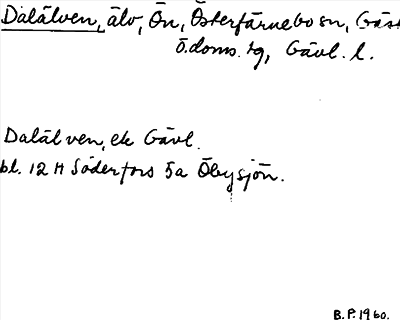 Dalälven, älv, Ön, Österfärnebo sn, Gäst
Ö.doms. tg, Gävl. l.
Dalälven, ek Gävl.
bl. 12 H Söderfors 5a Öbysjön.
B.P. 1960.